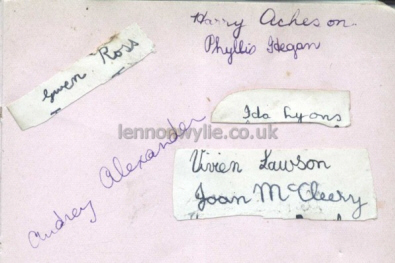 Harry Acheson
Phyllis Hegan
Gwen Ross
Ida Lyons
lennonwylie.co.uk
Audrey Alexander
Vivien Lawson
Joan McCleery